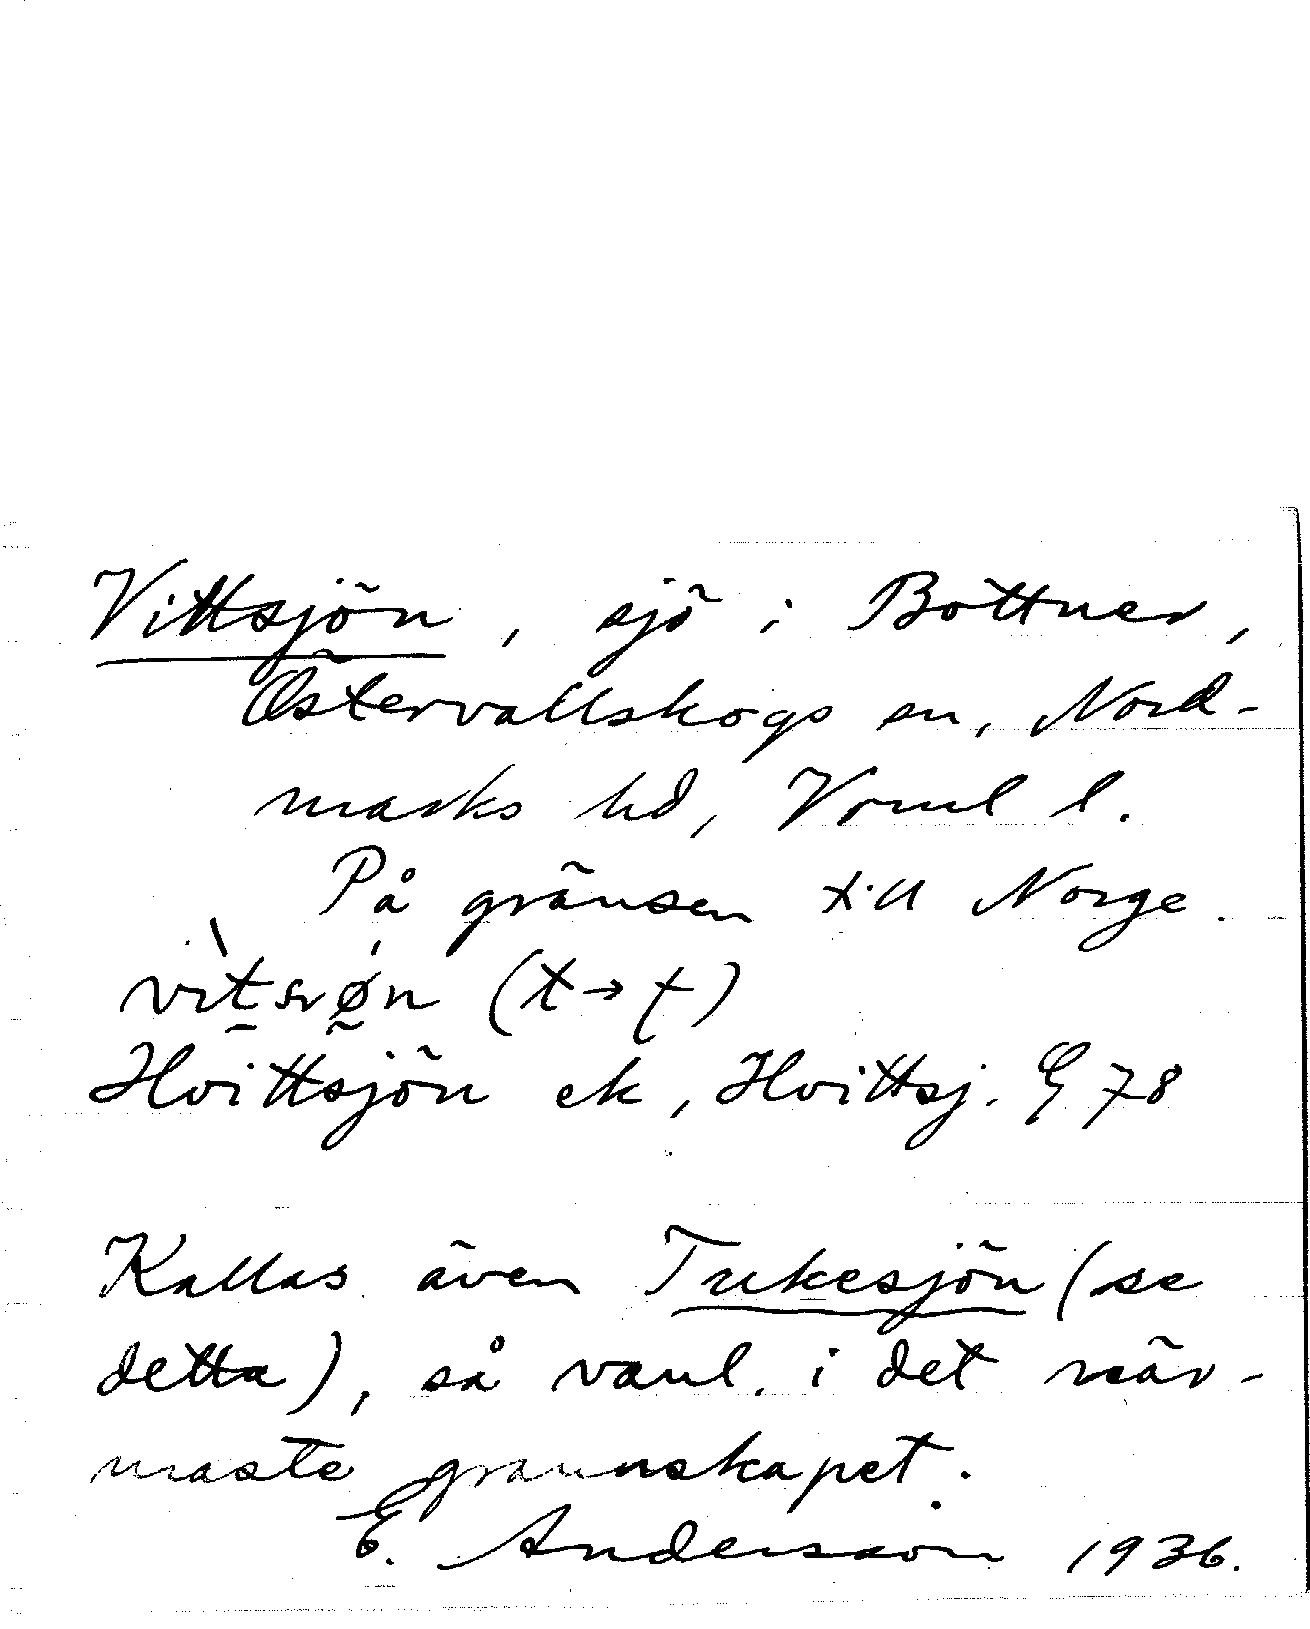 Vittsjön, sjö i Bottner,
Östervallskogs sn, Nord-
marks hd, Vrml l.
På gränsen till Norge.
Hvittsjön ek, Hvittsj. G 78
Kallas även Tukesjön (se
detta), så vanl. i det när-
maste grannskapet.
E. Andersson 1936.